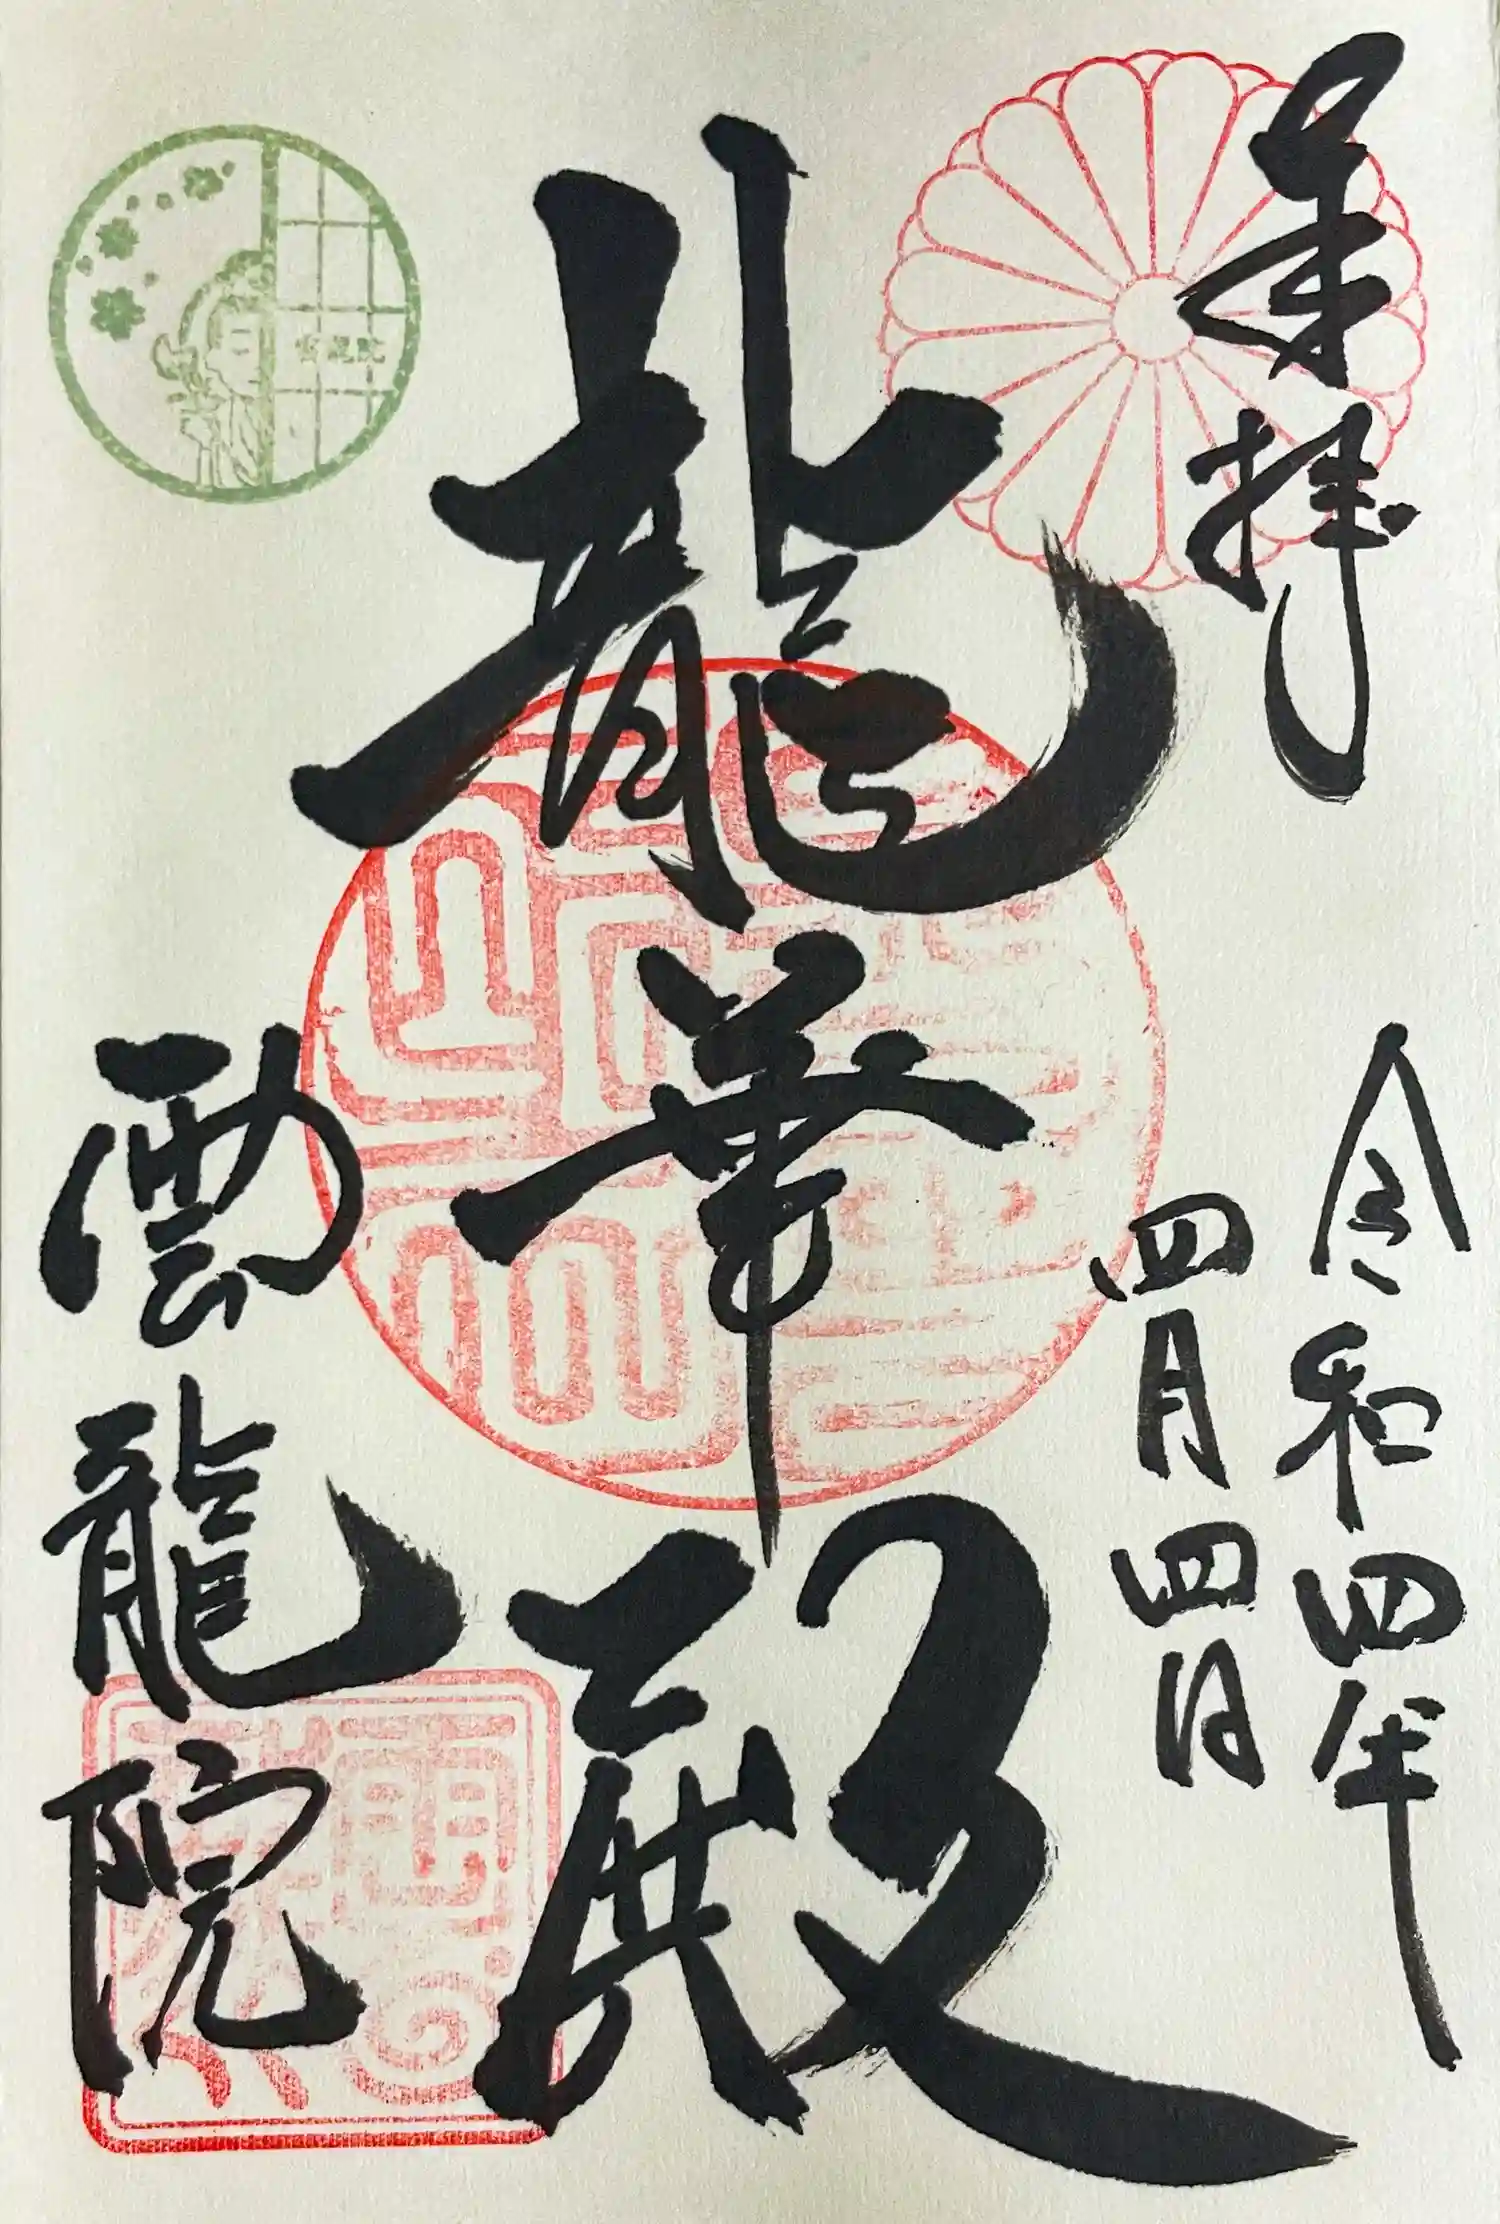 奉拝
令和四年
四月四日
龍華殿
雲龍院
雲龍院